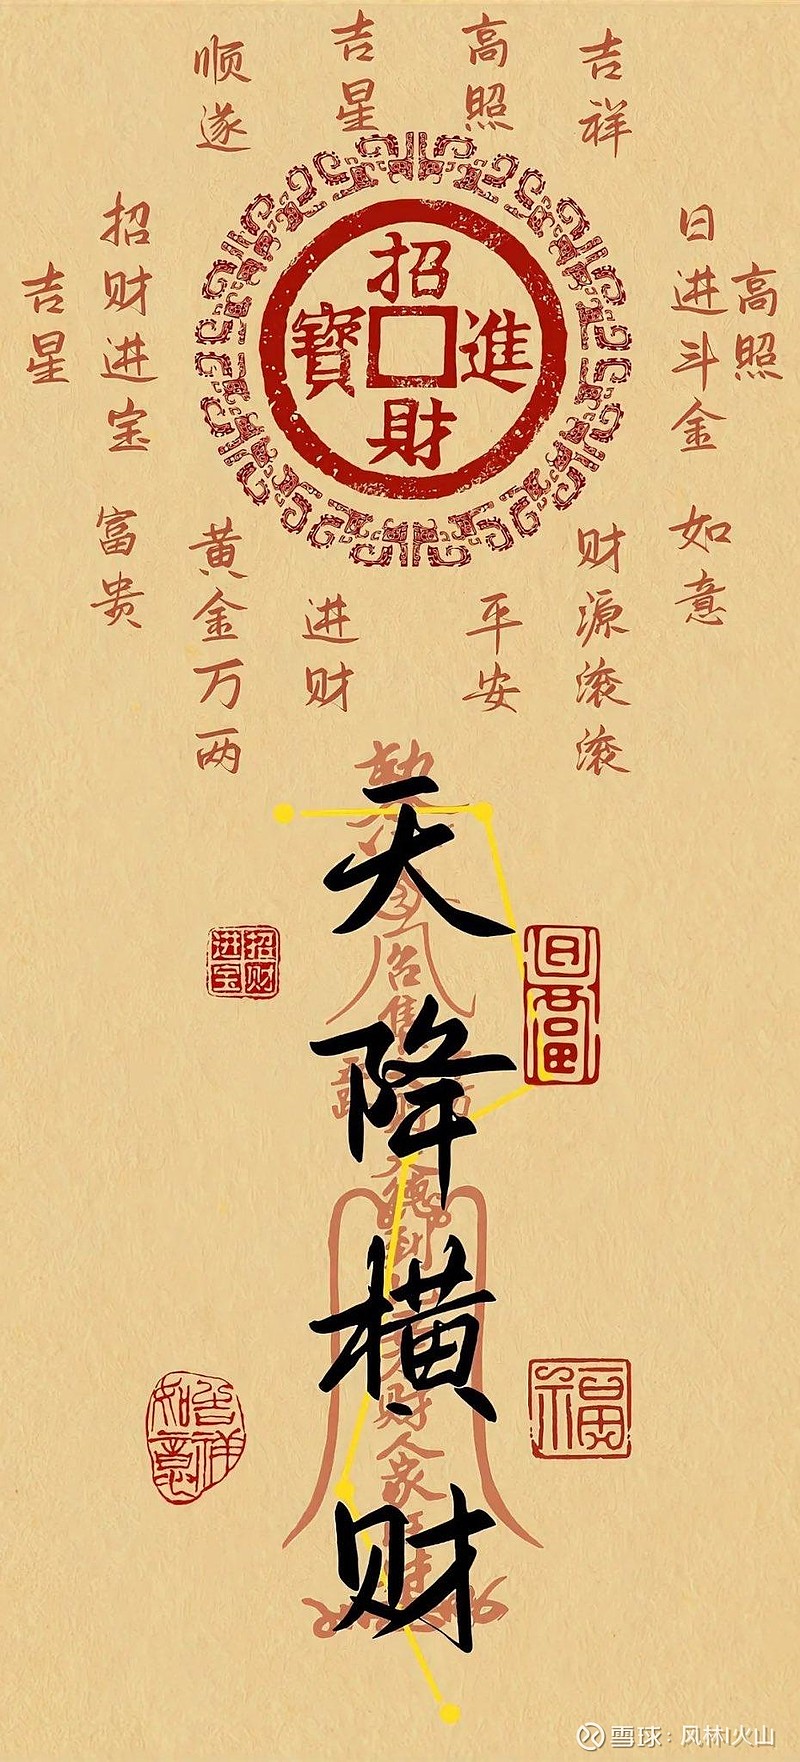 顺遂
吉星
高照
吉祥
吉星
招财进宝
日进斗金
高照
招
進
財
寶
富贵
黄金万两
进财
平安
财源滚滚
如意
天降横财
招财进宝
日富
吉祥如意
福
财
人
家
雪球：风林I火山